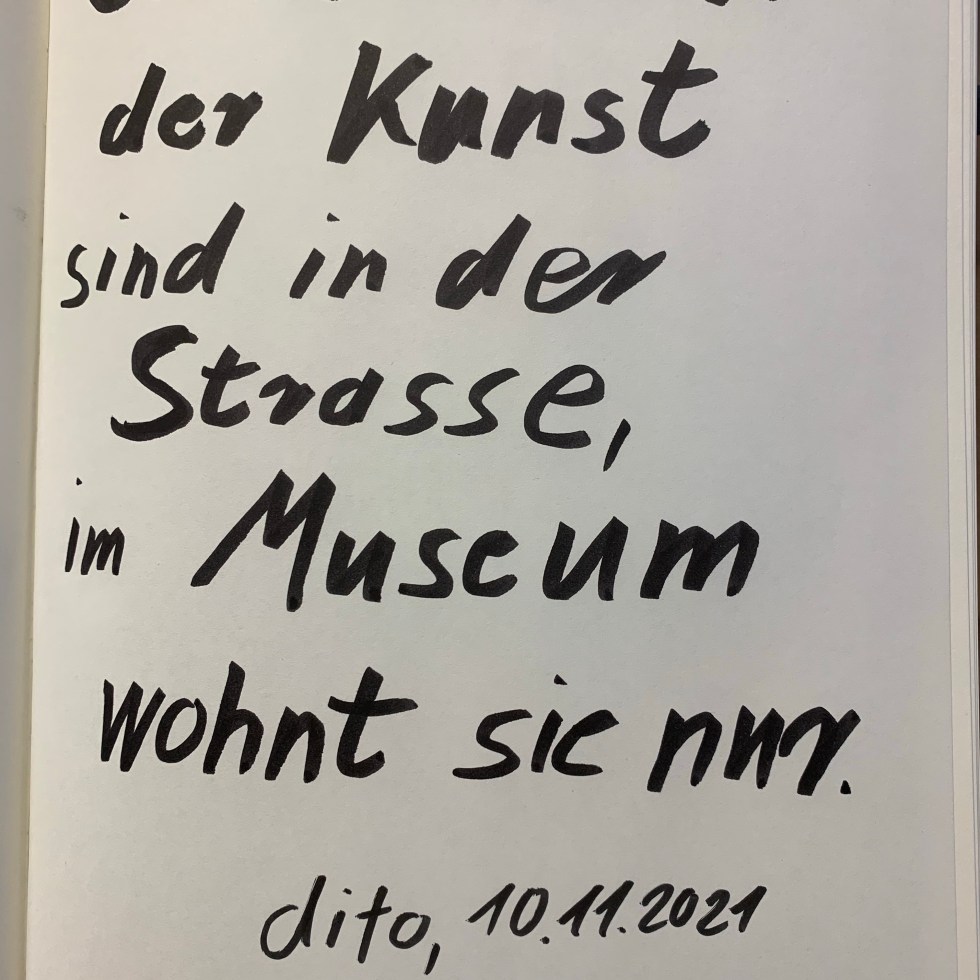 der Kunst
sind in der
Strasse,
im Museum
wohnt sie nur.
dito, 10.11.2021